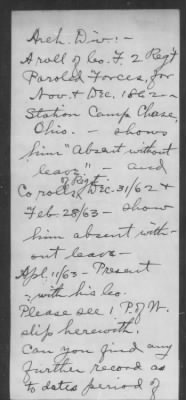 Arch. Div: -
A roll of Co. F. 2 Reg't
Paroled Forces, for
Nov. & Dec. 1862 -
Station Camp Chase,
Ohio. - shows
him "Absent without
leave" - and
Co rolls of Regt. Dec. 31/62 &
Feb. 28/63 - show
him absent with-
out leave -
Apl. 11/63 - Present
with his Co.
Please see 1 P. of W.
slip herewith.
Can you find any
further record as
to dates period of